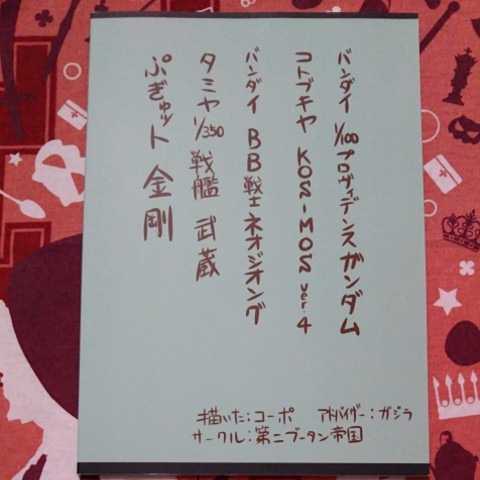 バンダイ 1/100プロヴィデンスガンダム
コトブキヤ KOS-MOS ver.4
バンダイ BB戦士ネオジオング
タミヤ 1/350 戦艦 武蔵
ぷぎゅット 金剛
描いた:コーポ アドバイザー:ガジラ
サークル:第二ブータン帝国